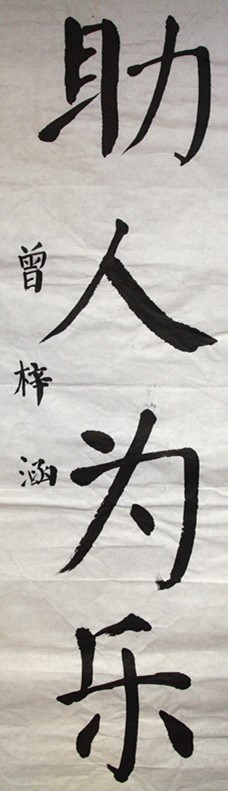 助人为乐
曾梓涵